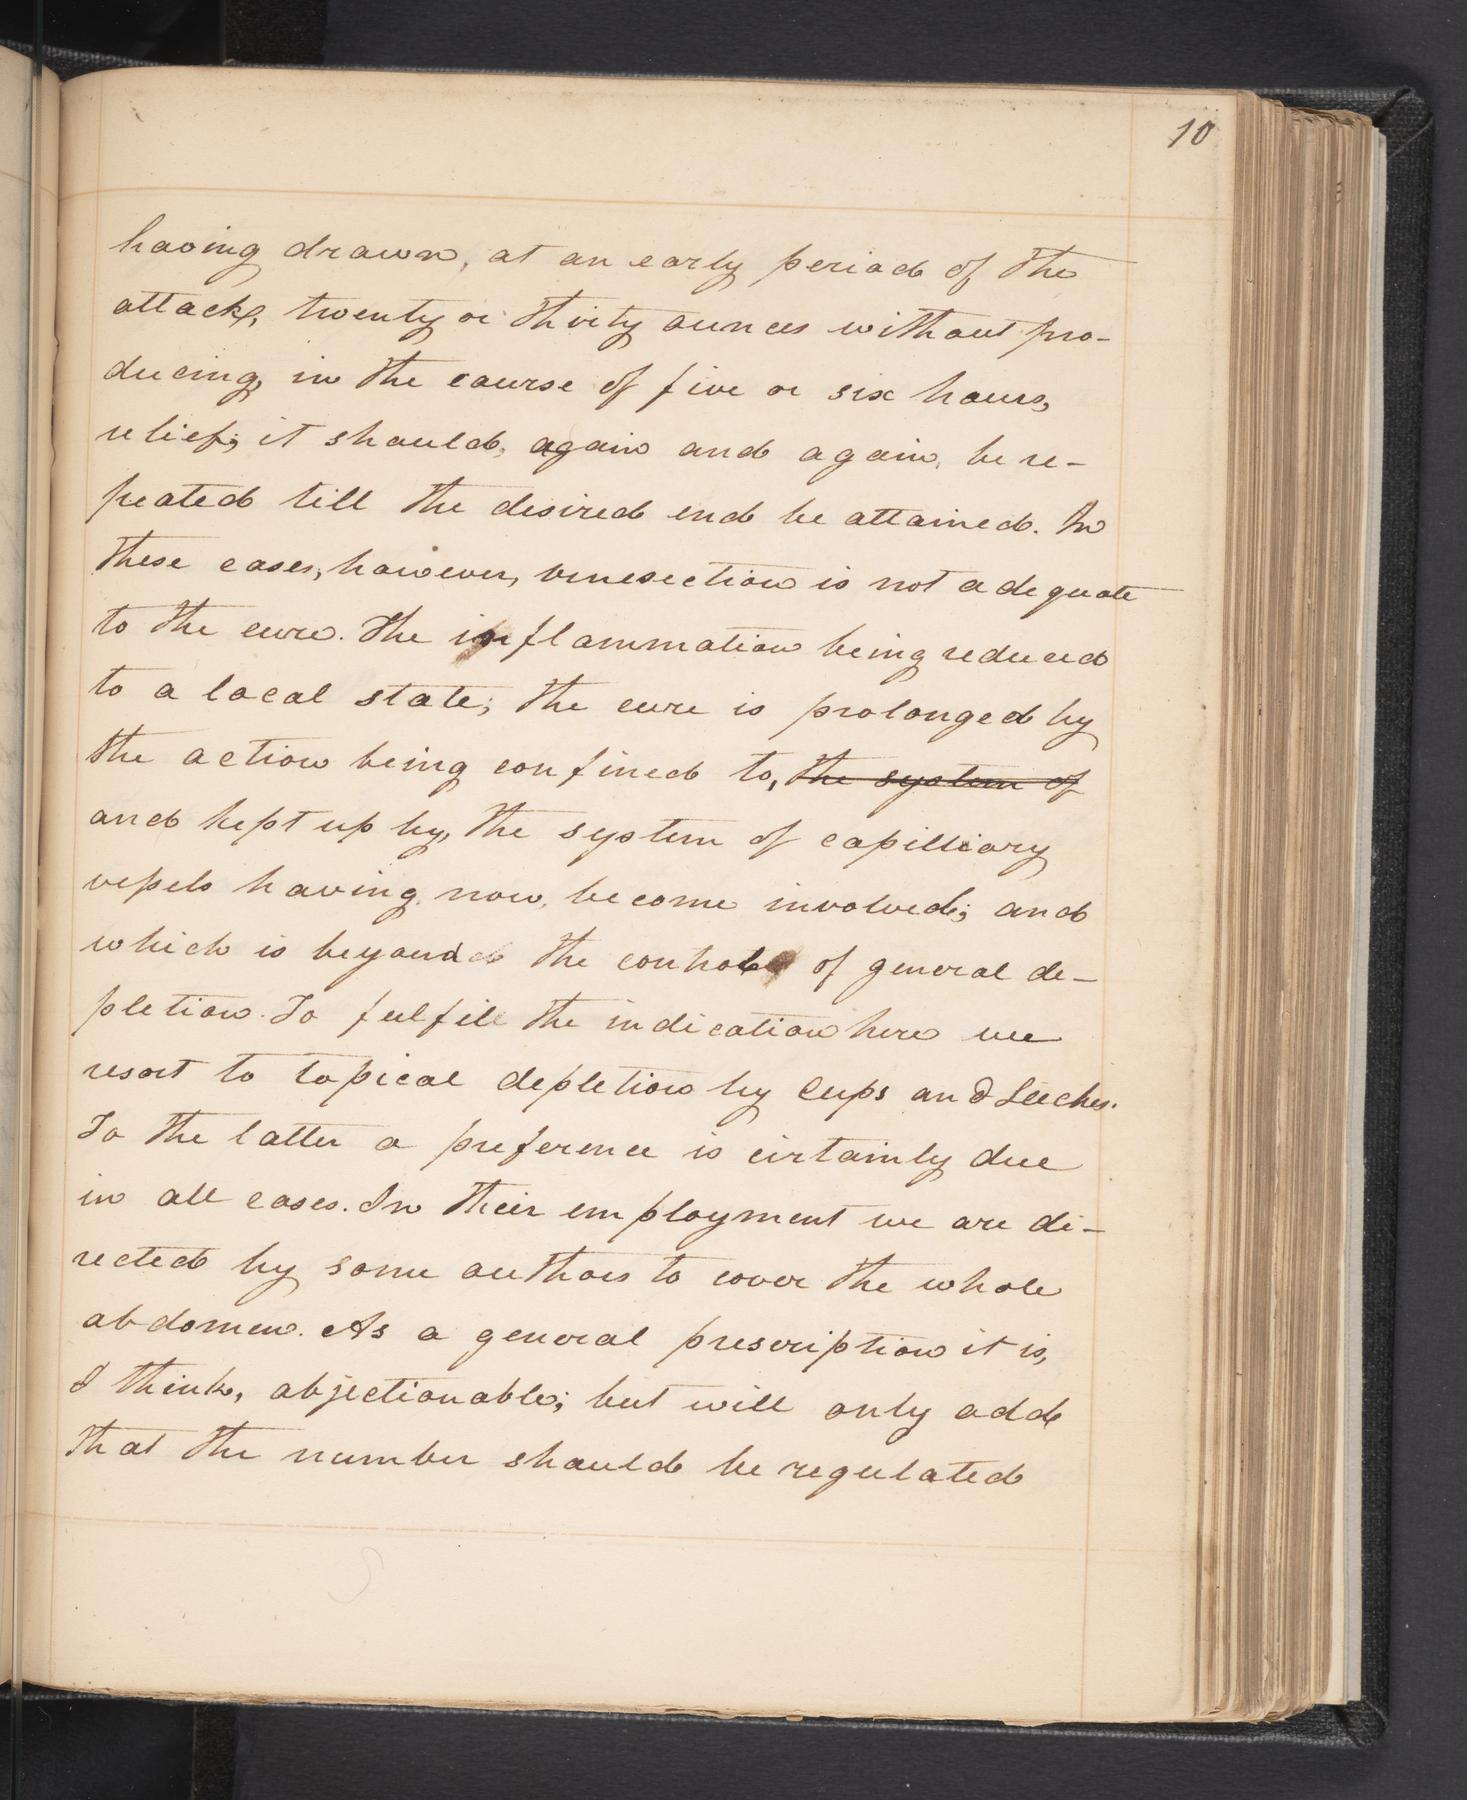 10
having drawn, at an early period of the
attack, twenty or thirty ounces without pro-
ducing, in the course of five or six hours,
relief; it should, again and again, be re-
peated till the desired end be attained. In
these cases, however, venesection is not adequate
to the cure. The inflammation being reduced
to a local state; the cure is prolonged by
the action being confined to, the system of
and kept up by, the system of capilliary
vessels having, now, become involved; and
which is beyond the control of general de-
pletion. To fulfill the indication here we
resort to topical depletion by Cups and Leeches.
To the latter a preference is cirtainly due
in all cases. In their employment we are di-
rected by some authors to cover the whole
abdomen. As a general prescription it is,
I think, objectionable; but will only add
that the number should be regulated